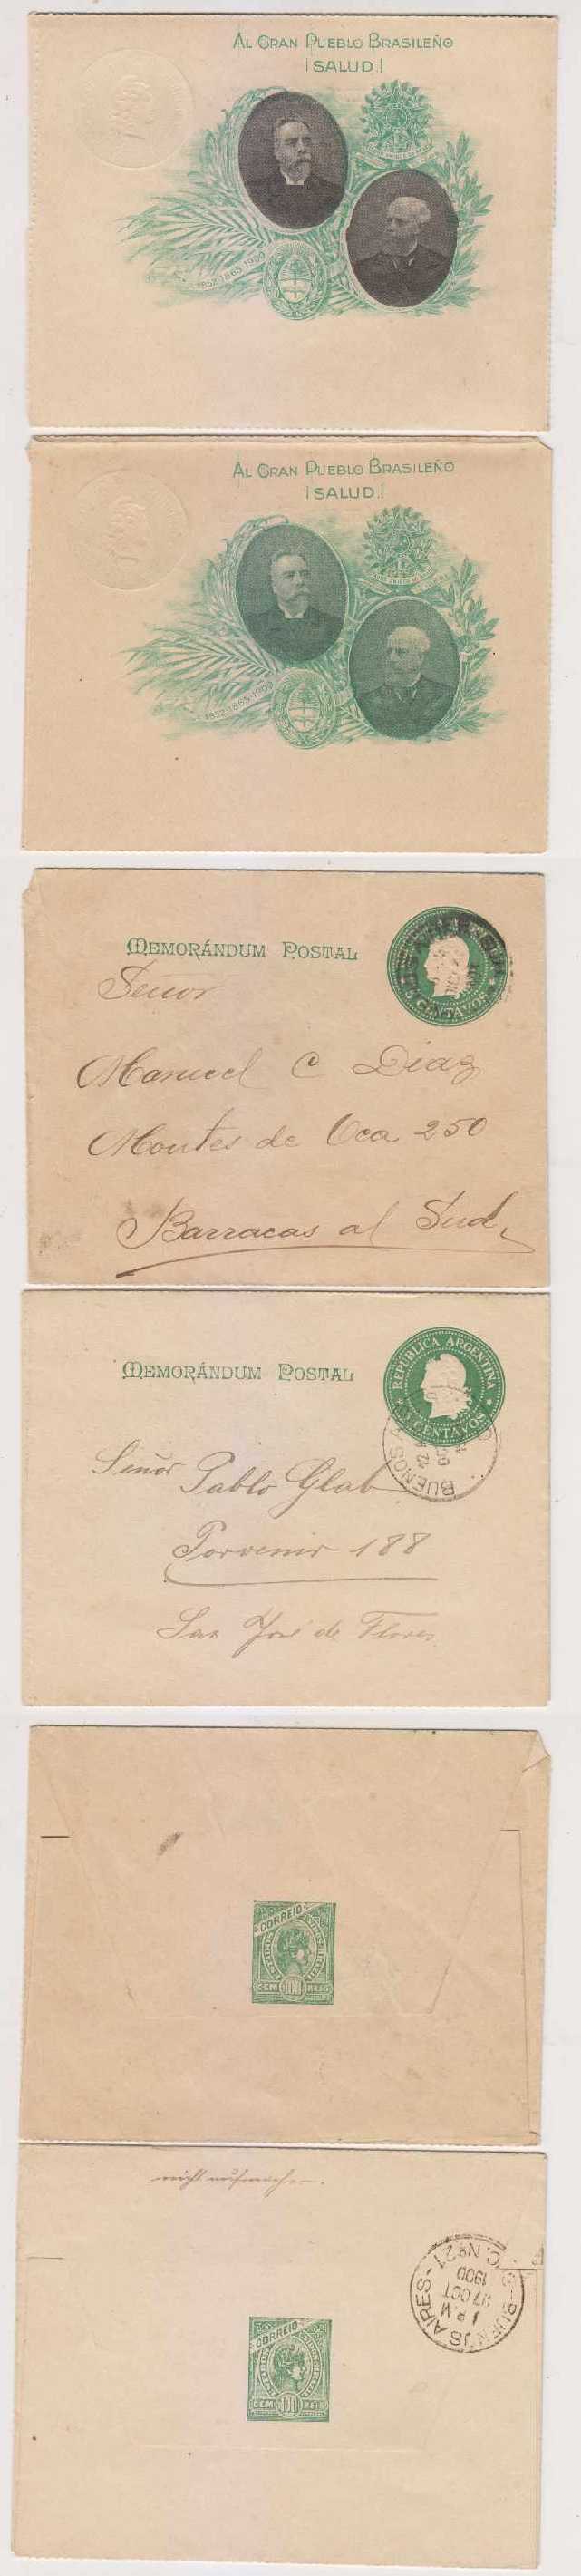 AL GRAN PUEBLO BRASILEÑO
¡SALUD!
1852·1865·1900
AL GRAN PUEBLO BRASILEÑO
¡SALUD!
1852·1865·1900
MEMORÁNDUM POSTAL
CENTAVOS
Señor
Manuel C Diaz
Montes de Oca 250
Barracas al Sud
MEMORÁNDUM POSTAL
REPUBLICA ARGENTINA
3 CENTAVOS
BUENOS A
12
Señor Pablo Glab
Porvenir 188
San José de Flores
CORREIO
CEM 100 REIS
nicht aufmachen.
BUENOS AIRES
C. Nº 21
1 P.M
17 OCT
1900
CORREIO
CEM 100 REIS